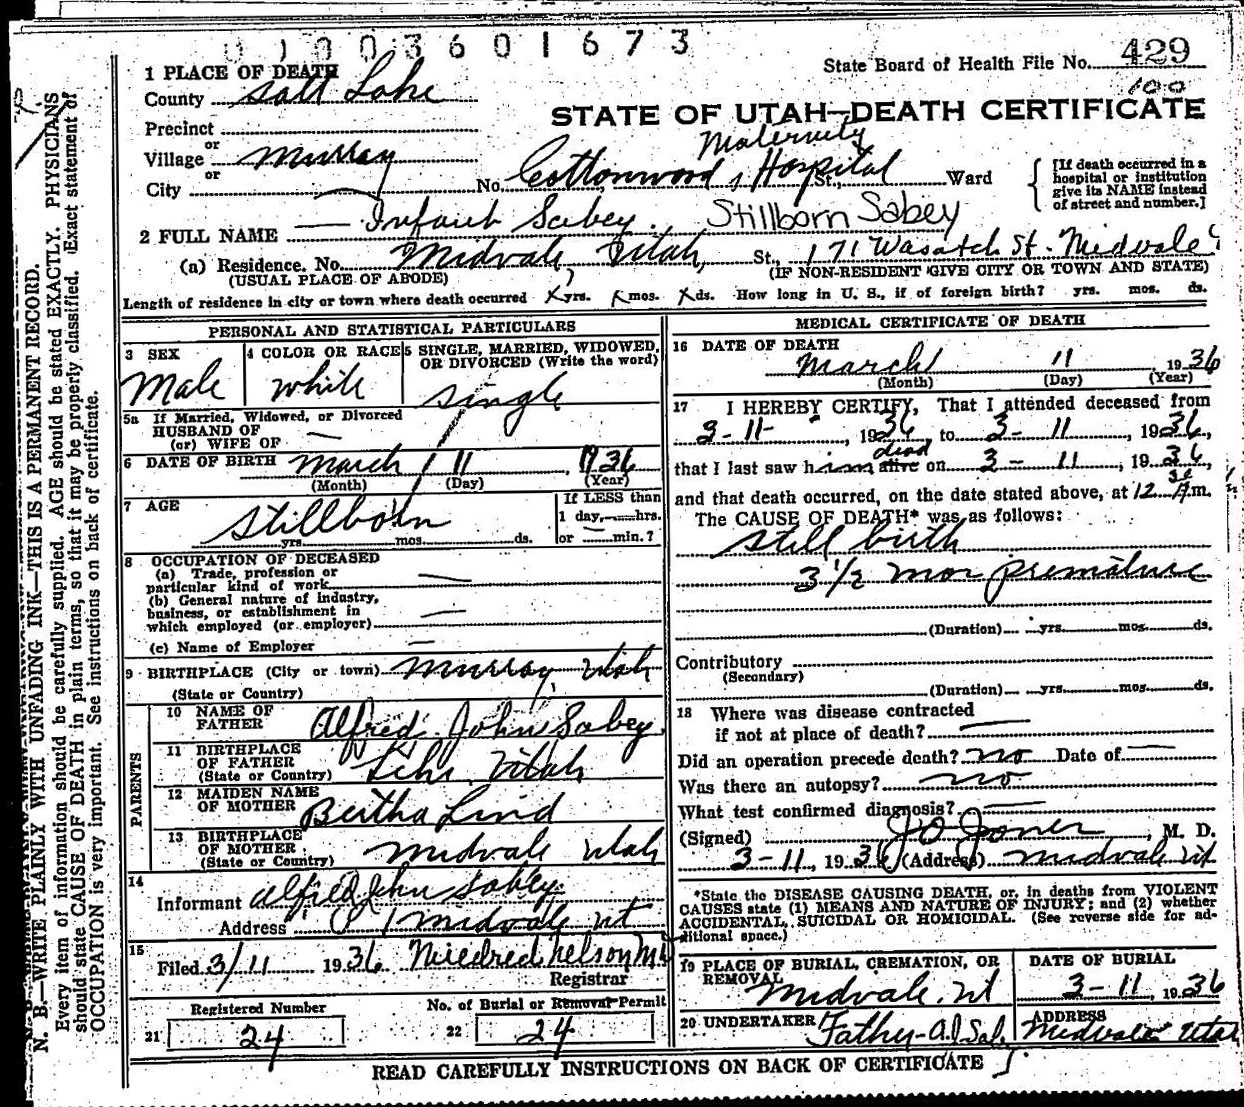 01003601673
State Board of Health File No. 429
100
STATE OF UTAH—DEATH CERTIFICATE
1 PLACE OF DEATH
County Salt Lake
Precinct
or
Village Murray
or
City
No. Cottonwood Maternity Hospital St., Ward
[If death occurred in a
hospital or institution
give its NAME instead
of street and number.]
2 FULL NAME Infant Sabey. Stillborn Sabey
(a) Residence. No. Midvale Utah, St., 171 Wasatch St. Midvale
(USUAL PLACE OF ABODE) (IF NON-RESIDENT GIVE CITY OR TOWN AND STATE)
Length of residence in city or town where death occurred x yrs. x mos. x ds. How long in U. S., if of foreign birth? yrs. mos. ds.
PERSONAL AND STATISTICAL PARTICULARS
3 SEX
Male
4 COLOR OR RACE
White
5 SINGLE, MARRIED, WIDOWED,
OR DIVORCED (Write the word)
Single
5a If Married, Widowed, or Divorced
HUSBAND OF
(or) WIFE OF —
6 DATE OF BIRTH March 11, 1936
(Month) (Day) (Year)
7 AGE
Stillborn
yrs. mos. ds.
If LESS than
1 day, — hrs.
or — min.?
8 OCCUPATION OF DECEASED
(a) Trade, profession or
particular kind of work —
(b) General nature of industry,
business, or establishment in
which employed (or employer) —
(c) Name of Employer —
9 BIRTHPLACE (City or town) Murray, Utah
(State or Country)
PARENTS
10 NAME OF
FATHER Alfred John Sabey
11 BIRTHPLACE
OF FATHER
(State or Country) Lehi Utah
12 MAIDEN NAME
OF MOTHER Bertha Lind
13 BIRTHPLACE
OF MOTHER
(State or Country) Midvale Utah
14
Informant Alfred John Sabey.
Address Midvale Ut
15
Filed 3/11 1936 Mildred Nelson
Registrar
Registered Number
21 24
No. of Burial or Removal Permit
22 24
MEDICAL CERTIFICATE OF DEATH
16 DATE OF DEATH
March 11 1936
(Month) (Day) (Year)
17 I HEREBY CERTIFY, That I attended deceased from
3-11-, 1936, to 3-11, 1936,
that I last saw him alive dead on 3-11, 1936,
and that death occurred, on the date stated above, at 12 30 A.m.
The CAUSE OF DEATH* was as follows:
Still birth
3 1/2 mos premature
(Duration) yrs. mos. ds.
Contributory
(Secondary)
(Duration) yrs. mos. ds.
18 Where was disease contracted
if not at place of death? —
Did an operation precede death? no Date of —
Was there an autopsy? no
What test confirmed diagnosis? —
(Signed) J O Jones, M. D.
3-11, 1936 (Address) Midvale Ut
*State the DISEASE CAUSING DEATH, or, in deaths from VIOLENT
CAUSES state (1) MEANS AND NATURE OF INJURY; and (2) whether
ACCIDENTAL, SUICIDAL OR HOMICIDAL. (See reverse side for ad-
ditional space.)
19 PLACE OF BURIAL, CREMATION, OR
REMOVAL
Midvale, Ut
DATE OF BURIAL
3-11, 1936
20 UNDERTAKER Father-A.J Sab.
ADDRESS
Midvale Utah
READ CAREFULLY INSTRUCTIONS ON BACK OF CERTIFICATE
N. B.—WRITE PLAINLY WITH UNFADING INK—THIS IS A PERMANENT RECORD.
Every item of information should be carefully supplied. AGE should be stated EXACTLY. PHYSICIANS
should state CAUSE OF DEATH in plain terms, so that it may be properly classified. Exact statement of
OCCUPATION is very important. See instructions on back of certificate.